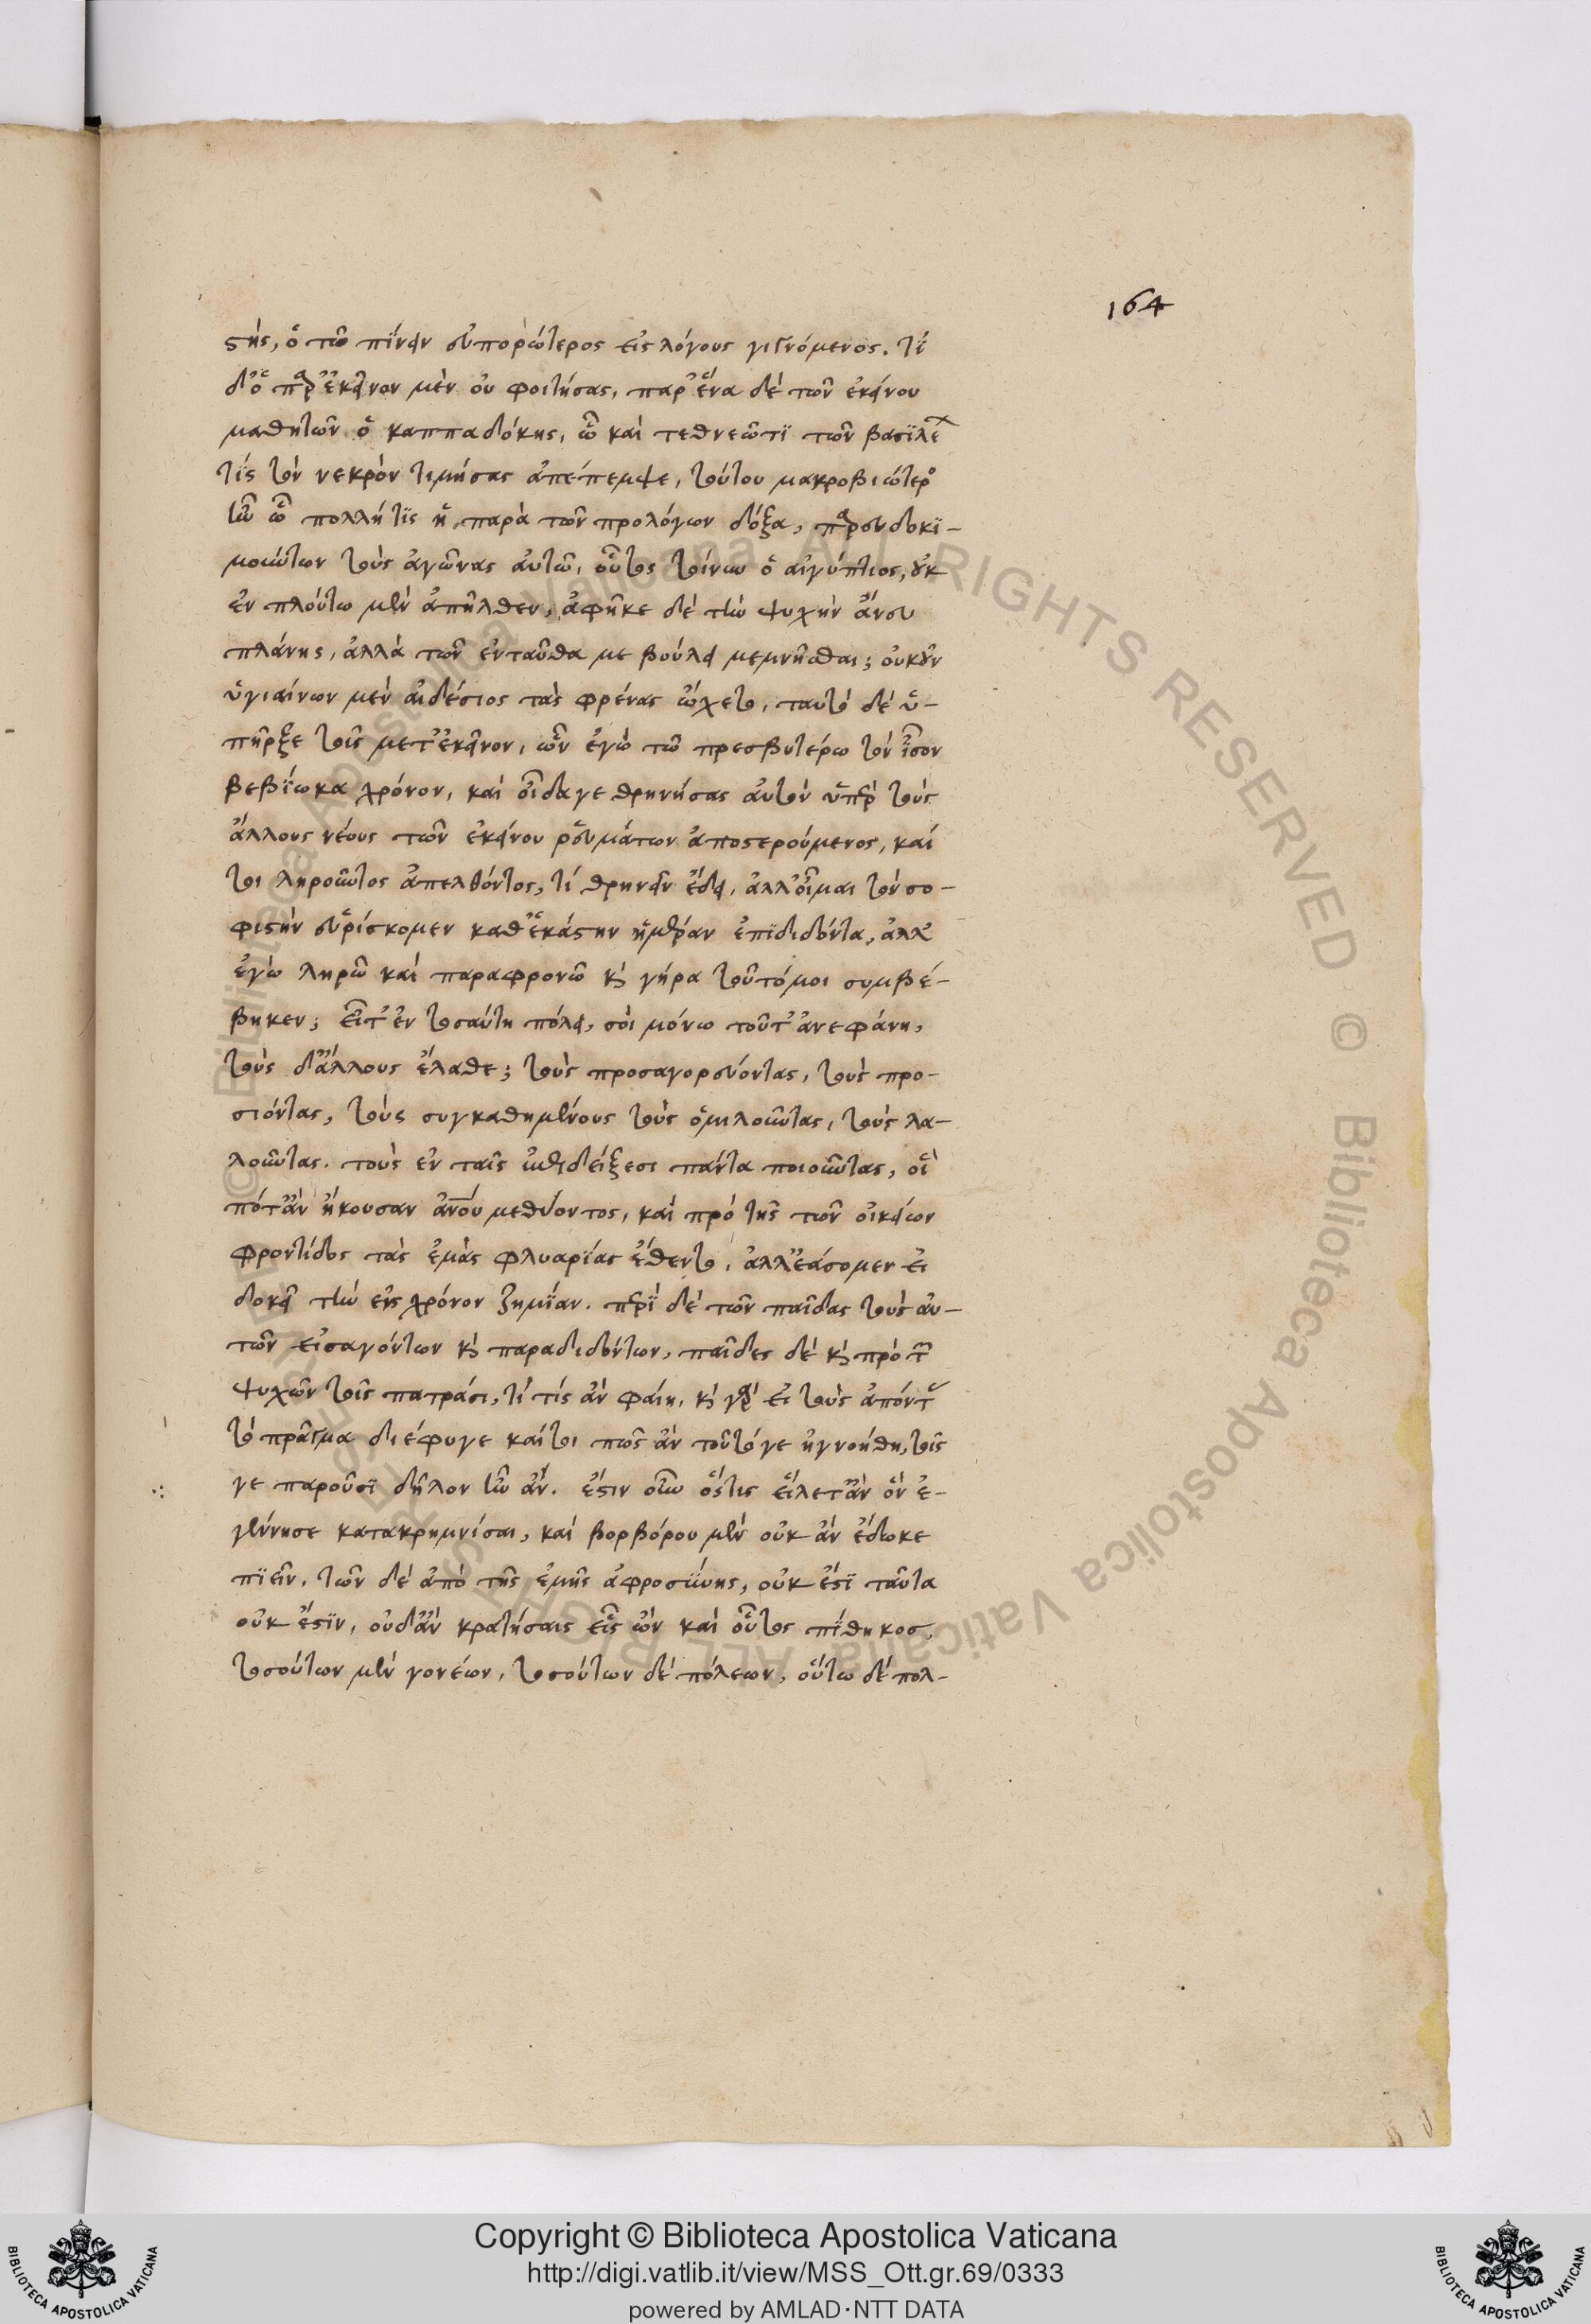 164
στης, ὁ τῶ πίνειν εὐπορώτερος εἰς λόγους γιγνόμενος. τί
δ' ὁ παρ' ἐκεῖνον μὲν οὐ φοιτήσας, παρ' ἕνα δὲ τῶν ἐκείνου
μαθητῶν ὁ καππαδόκης, ὧ καὶ τεθνεῶτι τῶν βασιλέ
τίς τὸν νεκρὸν τιμήσας ἀπέπεμψε, τούτου μακροβιώτερος
ἦν ὧ πολλή τις ἡ παρὰ τῶν προλόγων δόξα, παρευδοκι-
μούντων τοὺς ἀγῶνας αὐτῶ, οὗτος τοίνυν ὁ αἰγύπτιος, οὐκ
ἐν πλούτω μὲν ἀπῆλθεν, ἀφῆκε δὲ τὴν ψυχὴν ἄνευ
πλάνης, ἀλλὰ τῶν ἐνταῦθα με βούλει μεμνῆσθαι; οὐκοῦν
ὑγιαίνων μὲν αἰδέσιος τὰς φρένας ὤχετο, ταυτὸ δὲ ὑ-
πῆρξε τοῖς μετ' ἐκεῖνον, ὧν ἐγὼ τῶ πρεσβυτέρω τὸν ἴσον
βεβίωκα χρόνον, καὶ οἶδά γε θρηνήσας αὐτὸν ὑπὲρ τοὺς
ἄλλους νέους τῶν ἐκείνου ῥευμάτων ἀποστερούμενος, καί
τοι ληροῦντος ἀπελθόντος, τί θρηνεῖν ἔδει, ἀλλ' οἶμαι τὸν σο-
φιστὴν εὑρίσκομεν καθ' ἑκάστην ἡμέραν ἐπιδιδόντα, ἀλλ'
ἐγὼ ληρῶ καὶ παραφρονῶ καὶ γήρα τοῦτό μοι συμβέ-
βηκεν; εἶτ' ἐν τοσαύτη πόλει, σοὶ μόνω τοῦτ' ἀνεφάνη,
τοὺς δ' ἄλλους ἔλαθε; τοὺς προσαγορεύοντας, τοὺς προ-
σιόντας, τοὺς συγκαθημένους τοὺς ὁμιλοῦντας, τοὺς λα-
λοῦντας. τοὺς ἐν ταῖς ἐπιδείξεσι πάντα ποιοῦντας, οἳ
πότ' ἂν ἤκουσαν ἀνοῦ μεθύοντος, καὶ πρὸ τῆς τῶν οἰκείων
φροντίδος τὰς ἐμὰς φλυαρίας ἔθεντο, ἀλλ' ἐάσομεν εἰ
δοκεῖ τὴν εἰς χρόνον ζημίαν. περὶ δὲ τῶν παῖδας τοὺς αὑ-
τῶν εἰσαγόντων καὶ παραδιδόντων, παῖδες δὲ καὶ πρὸ τῶν
ψυχῶν τοῖς πατράσι, τί τίς ἂν φαίη, καὶ γὰρ εἰ τοὺς ἀπόντας
τὸ πρᾶγμα διέφυγε καίτοι πῶς ἂν τοῦτό γε ἠγνοήθη, τοῖς
γε παροῦσι δῆλον ἦν ἄν. ἔστιν οὖν ὅστις εἵλετ' ἂν ὃν ἐ-
γέννησε κατακρημνίσαι, καὶ βορβόρου μὲν οὐκ ἂν ἔδωκε
πιεῖν, τῶν δὲ ἀπὸ τῆς ἐμῆς ἀφροσύνης, οὐκ ἔστι ταῦτα
οὐκ ἔστιν, οὐδ' ἂν κρατήσαις εἷς ὢν καὶ οὗτος πίθηκος,
τοσούτων μὲν γονέων, τοσούτων δὲ πόλεων, οὕτω δὲ πολ-
Copyright © Biblioteca Apostolica Vaticana
http://digi.vatlib.it/view/MSS_Ott.gr.69/0333
powered by AMLAD·NTT DATA
BIBLIOTECA APOSTOLICA VATICANA
BIBLIOTECA APOSTOLICA VATICANA
© Biblioteca Apostolica Vaticana ALL RIGHTS RESERVED © Biblioteca Apostolica Vaticana ALL RIGHTS RESERVED